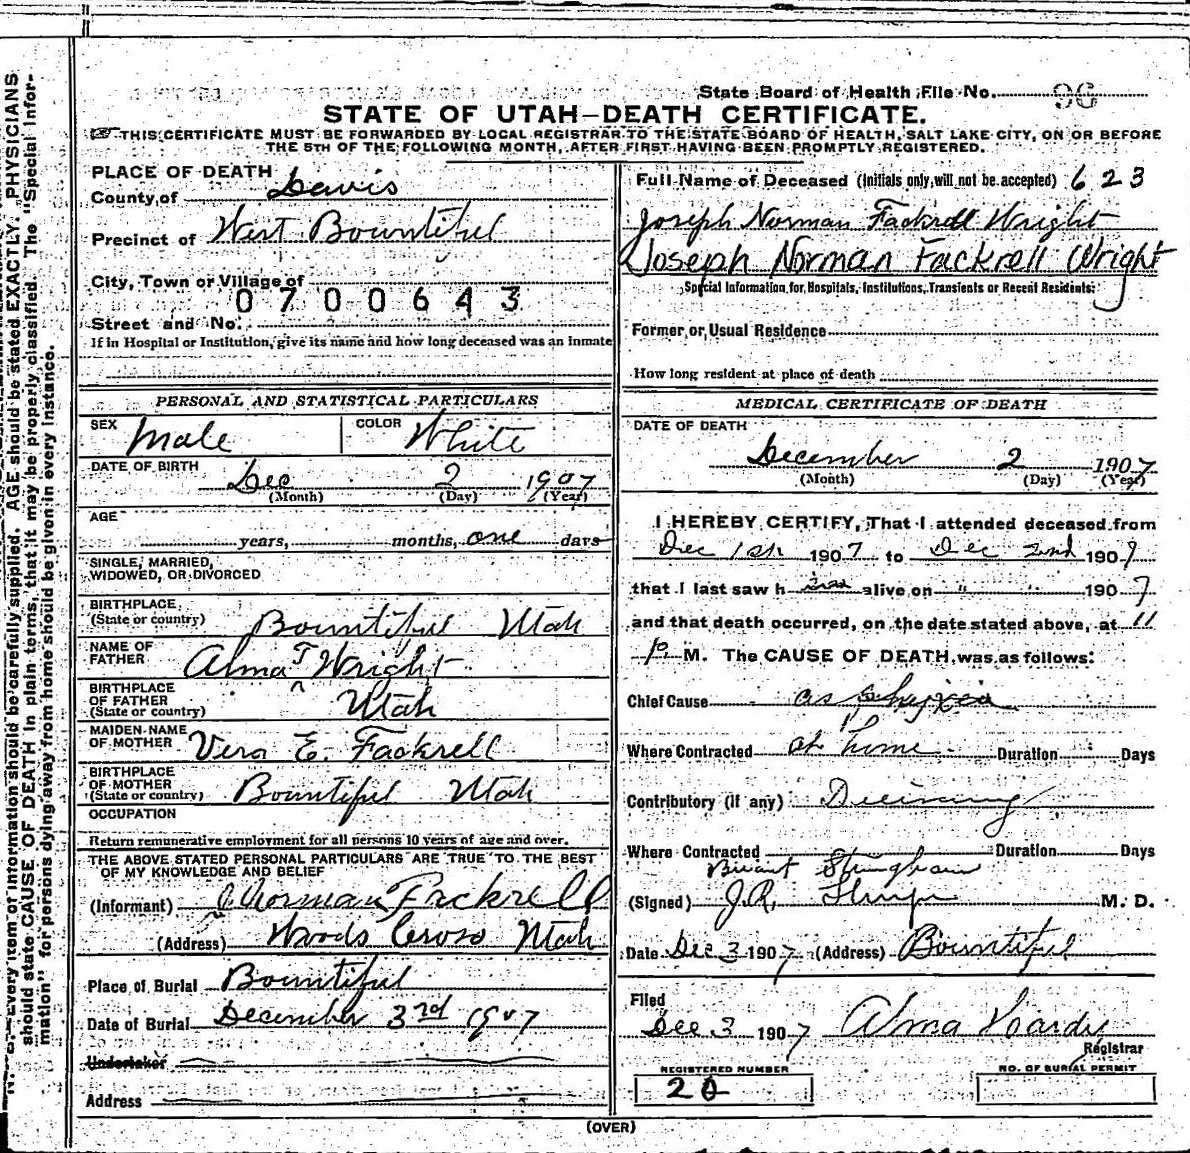 State Board of Health File No. 96
STATE OF UTAH—DEATH CERTIFICATE.
THIS CERTIFICATE MUST BE FORWARDED BY LOCAL REGISTRAR TO THE STATE BOARD OF HEALTH, SALT LAKE CITY, ON OR BEFORE
THE 5TH OF THE FOLLOWING MONTH, AFTER FIRST HAVING BEEN PROMPTLY REGISTERED.
PLACE OF DEATH
County of Davis
Precinct of West Bountiful
City, Town or Village of
0700643
Street and No.
If in Hospital or Institution, give its name and how long deceased was an inmate
PERSONAL AND STATISTICAL PARTICULARS
SEX Male COLOR White
DATE OF BIRTH Dec 2 1907
(Month) (Day) (Year)
AGE
years, months, one days
SINGLE, MARRIED,
WIDOWED, OR DIVORCED
BIRTHPLACE
(State or country) Bountiful Utah
NAME OF
FATHER Alma T Wright
BIRTHPLACE
OF FATHER
(State or country) Utah
MAIDEN NAME
OF MOTHER Vera E. Fackrell
BIRTHPLACE
OF MOTHER
(State or country) Bountiful Utah
OCCUPATION
Return remunerative employment for all persons 10 years of age and over.
THE ABOVE STATED PERSONAL PARTICULARS ARE TRUE TO THE BEST
OF MY KNOWLEDGE AND BELIEF
(Informant) Norman Fackrell
(Address) Woods Cross Utah
Place of Burial Bountiful
Date of Burial December 3rd 1907
Undertaker
Address
Full Name of Deceased (Initials only, will not be accepted) 623
Joseph Norman Fackrell Wright
Joseph Norman Fackrell Wright
Special Information for Hospitals, Institutions, Transients or Recent Residents:
Former or Usual Residence
How long resident at place of death
MEDICAL CERTIFICATE OF DEATH
DATE OF DEATH
December 2 1907
(Month) (Day) (Year)
I HEREBY CERTIFY, That I attended deceased from
Dec 1st 1907 to Dec 2nd 1907
that I last saw h alive on " " 1907
and that death occurred, on the date stated above, at 11
P. M. The CAUSE OF DEATH was as follows:
Chief Cause asphyxia
Where Contracted at home Duration Days
Contributory (if any)
Where Contracted Duration Days
Briant Stringham
(Signed) J.R. M. D.
Date Dec 3 1907 (Address) Bountiful
Filed
Dec 3 1907 Alma Hardy
Registrar
REGISTERED NUMBER
20
NO. OF BURIAL PERMIT
(OVER)
N. B.—Every item of information should be carefully supplied. AGE should be stated EXACTLY. PHYSICIANS
should state CAUSE OF DEATH in plain terms, that it may be properly classified. The "Special Infor-
mation" for persons dying away from home should be given in every instance.